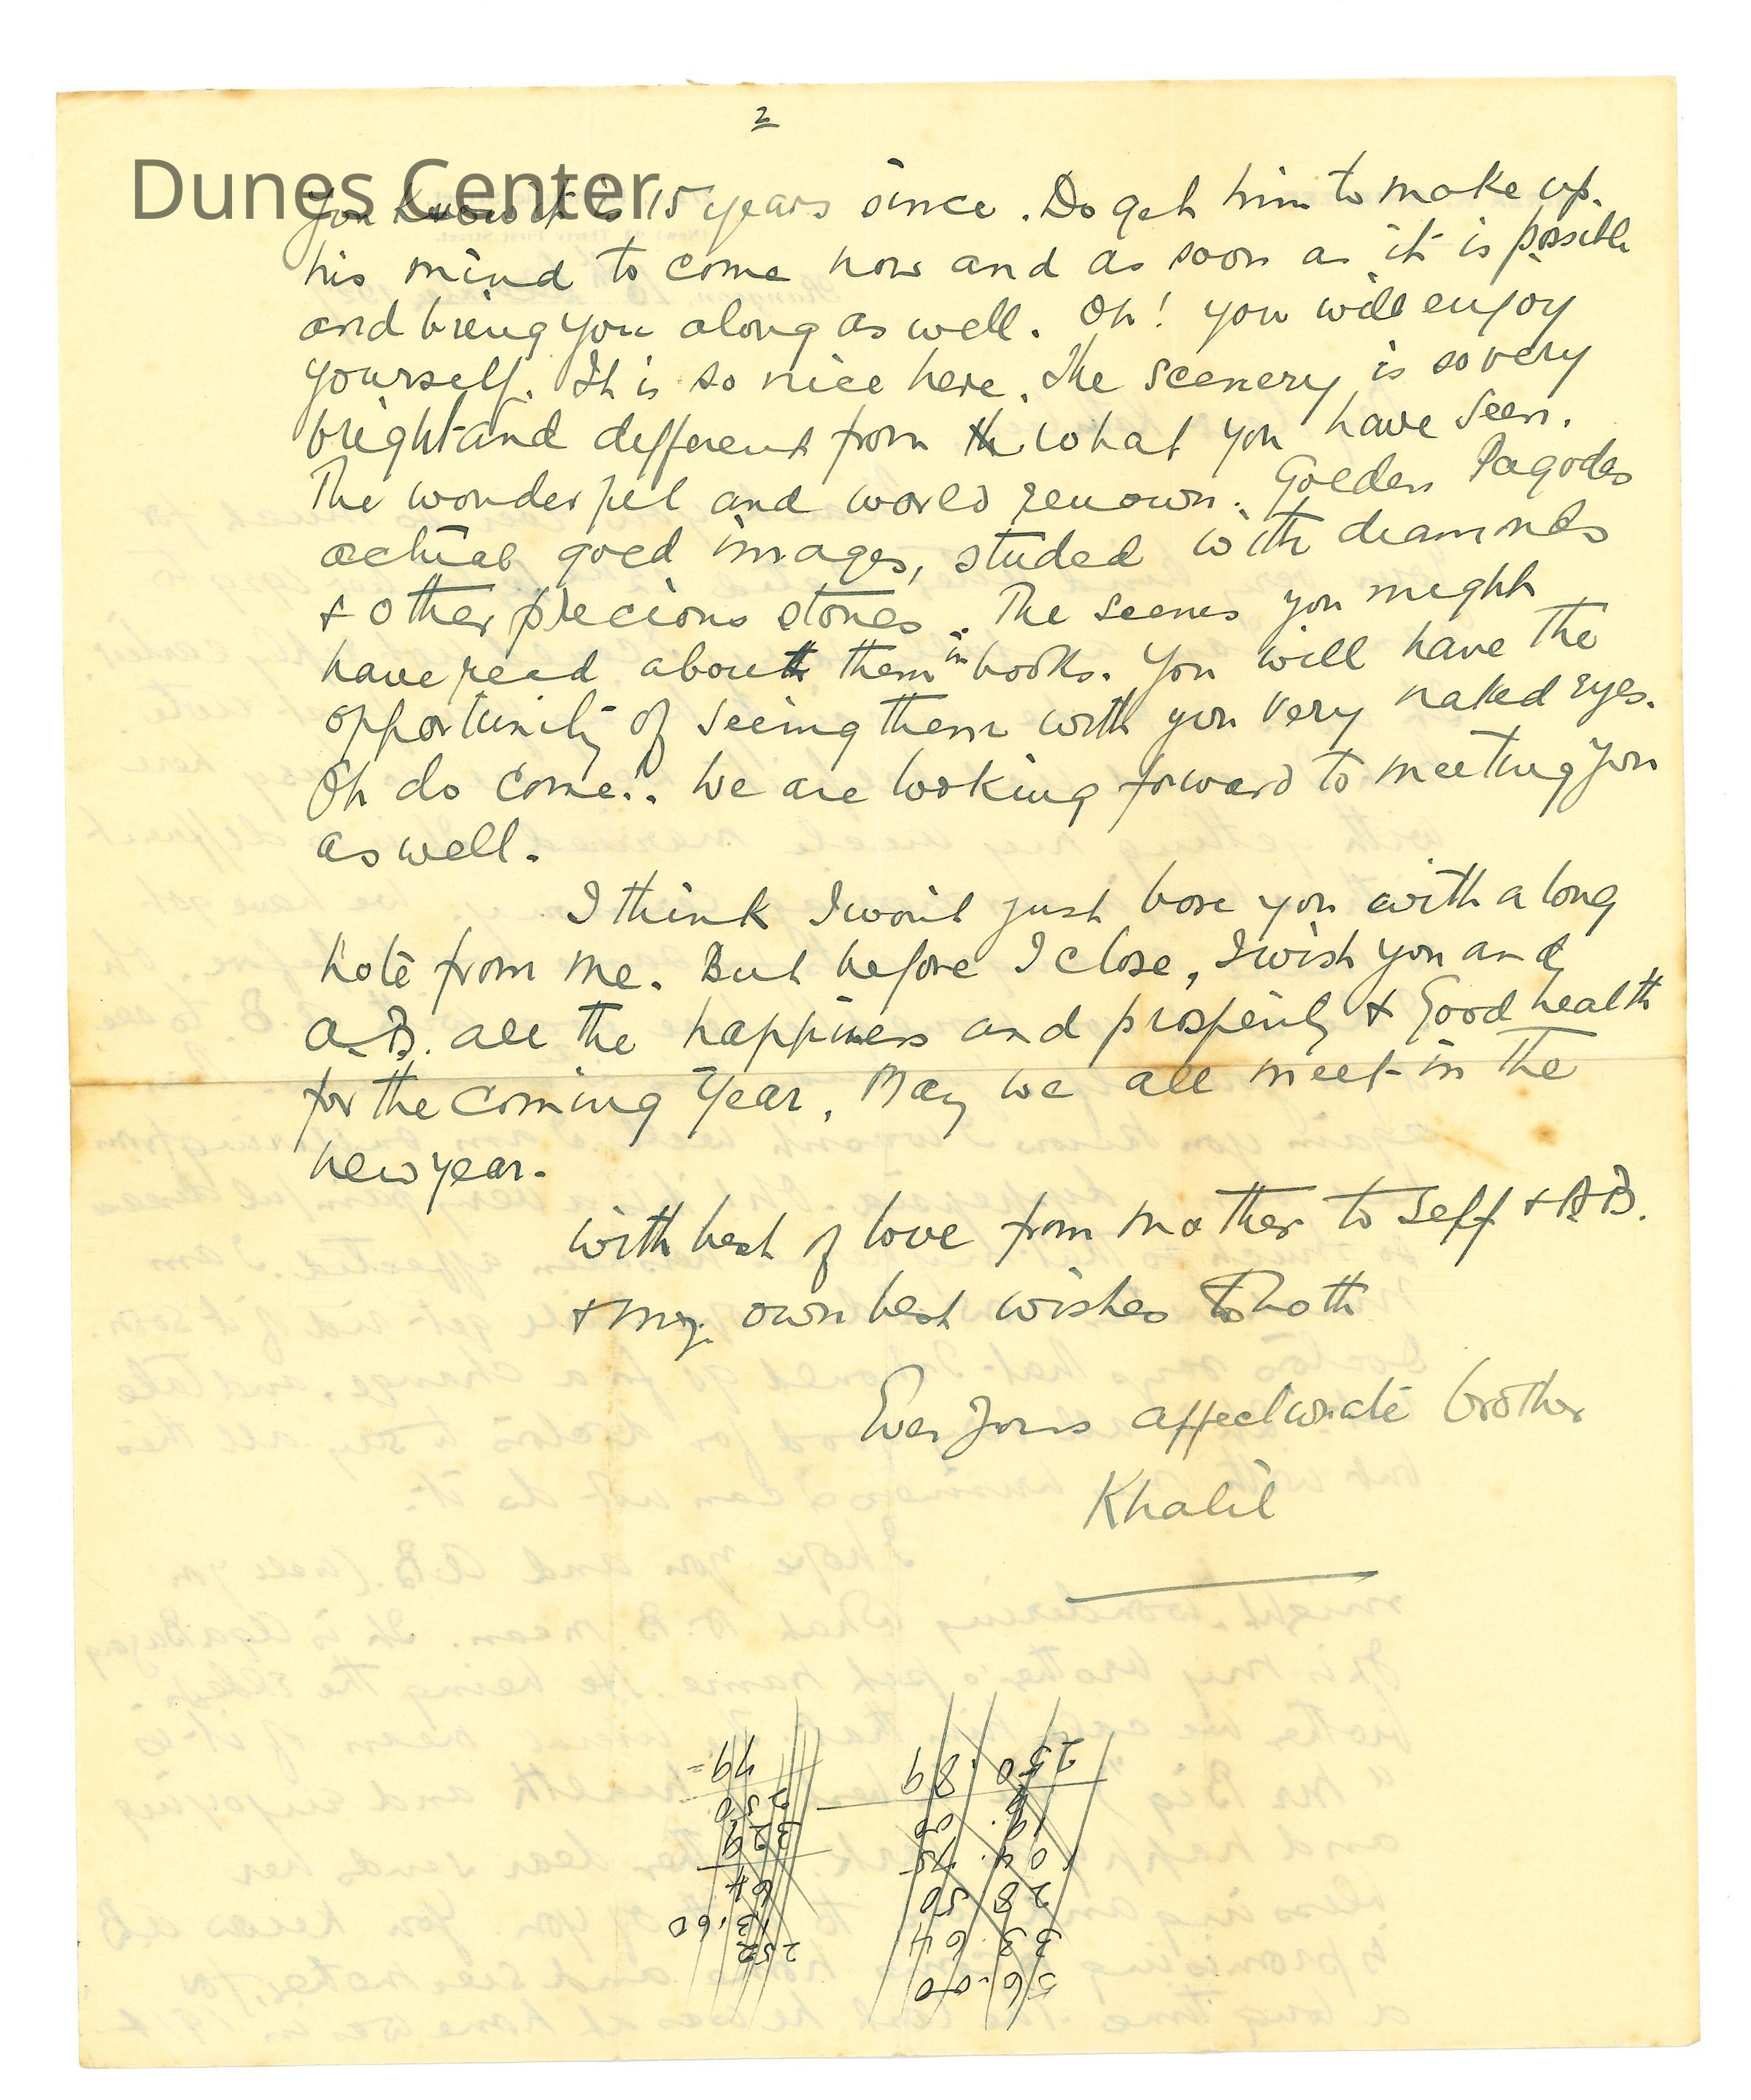 2
Dunes Center
You know it is 15 years since. Do get him to make up
his mind to come now and as soon as it is possible
and bring you along as well. Oh! you will enjoy
yourself. It is so nice here. The scenery is so very
bright and different from th what you have seen.
The wonderful and world renown. Golden Pagodas
actual gold images, studed with diamonds
& other precious stones. The scenes you might
have read about them in books. You will have the
opportunity of seeing them with your very naked eyes.
Oh do come!. We are looking forward to meeting you
as well.
I think I won't just bore you with a long
note from me. But before I close, I wish you and
A.B. all the happiness and prosperity & Good health
for the coming Year. May we all meet in the
new year.
With best of love from Mother to self & A.B.
& my own best wishes to both
Ever Yours affectionate brother
Khalil
56.00
33.64
28 50
04.75
250.89
252
13.60
64
329
250